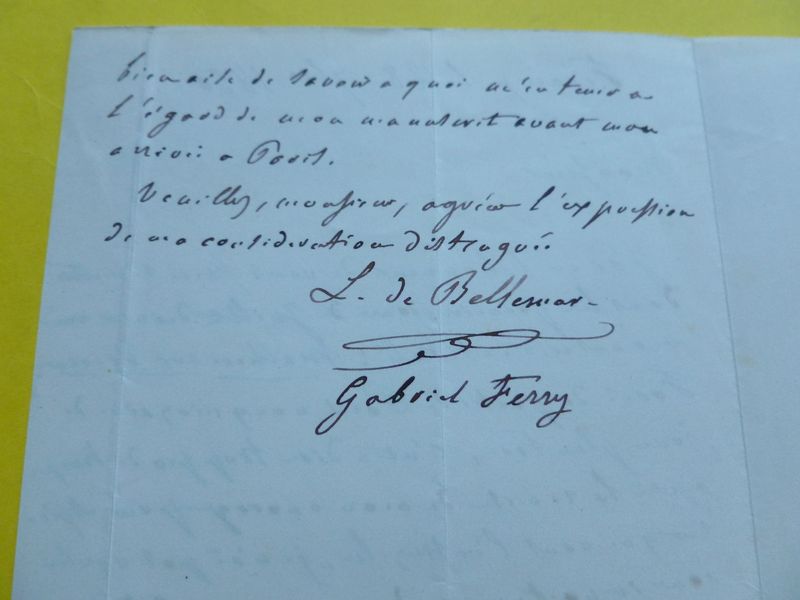 bien aise de savoir a quoi m'en tenir a
l'égard de mon manuscrit avant mon
arrivée a Paris.
Veuillez, monsieur, agréer l'expression
de ma consideration distinguée
L. de Bellemar-
Gabriel Ferry